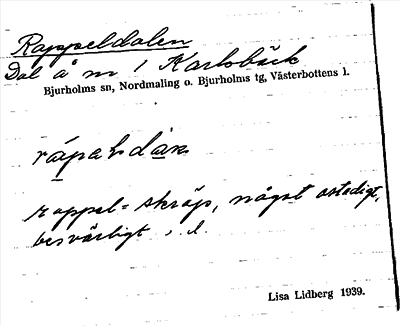 Rappeldalen
Dal å m 1 Karlsbäck
Bjurholms sn, Nordmaling o. Bjurholms tg, Västerbottens l.
rappel = skräp, något ostadigt,
besvärligt
Lisa Lidberg 1939.